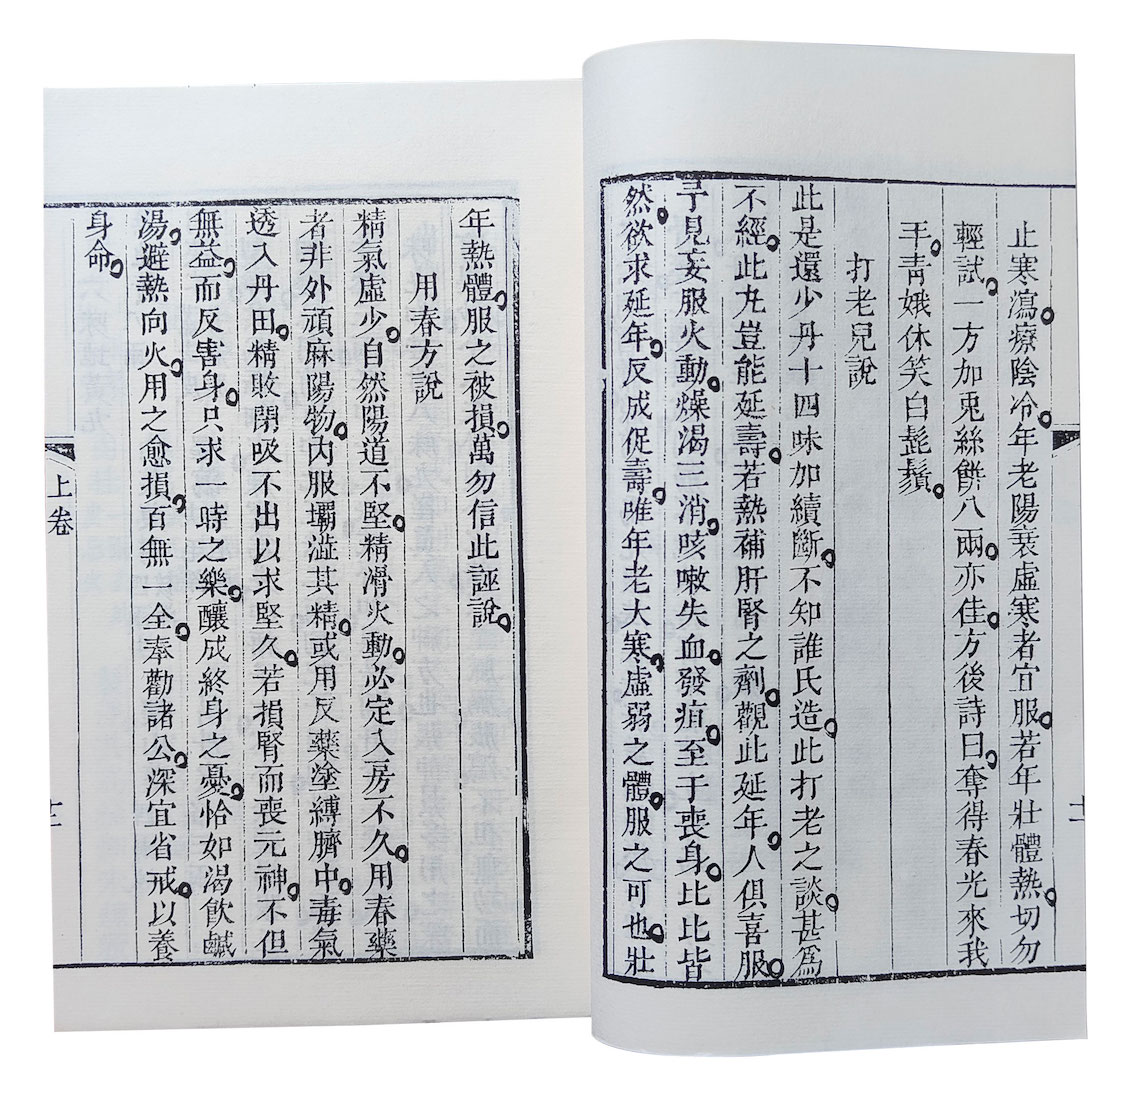 止寒瀉療陰冷年老陽衰虛寒者宜服若年壯體熱切勿
輕試一方加兎絲餅八兩亦佳方後詩曰奪得春光來我
手青娥休笑白髭鬚
打老兒說
此是還少丹十四味加續斷不知誰氏造此打老之談甚爲
不經此丸豈能延壽若熱補肝腎之劑觀此延年人俱喜服
予見妄服火動燥渴三消咳嗽失血發疽至于喪身比比皆
然欲求延年反成促壽唯年老大寒虛弱之體服之可也壯
年熱體服之被損萬勿信此誣說
用春方說
精氣虛少自然陽道不堅精滑火動必定入房不久用春藥
者非外頑麻陽物內服壩澁其精或用反藥塗縛臍中毒氣
透入丹田精敗閉吸不出以求堅久若損腎而喪元神不但
無益而反害身只求一時之樂釀成終身之憂恰如渴飲鹹
湯避熱向火用之愈損百無一全奉勸諸公深宜省戒以養
身命
上卷